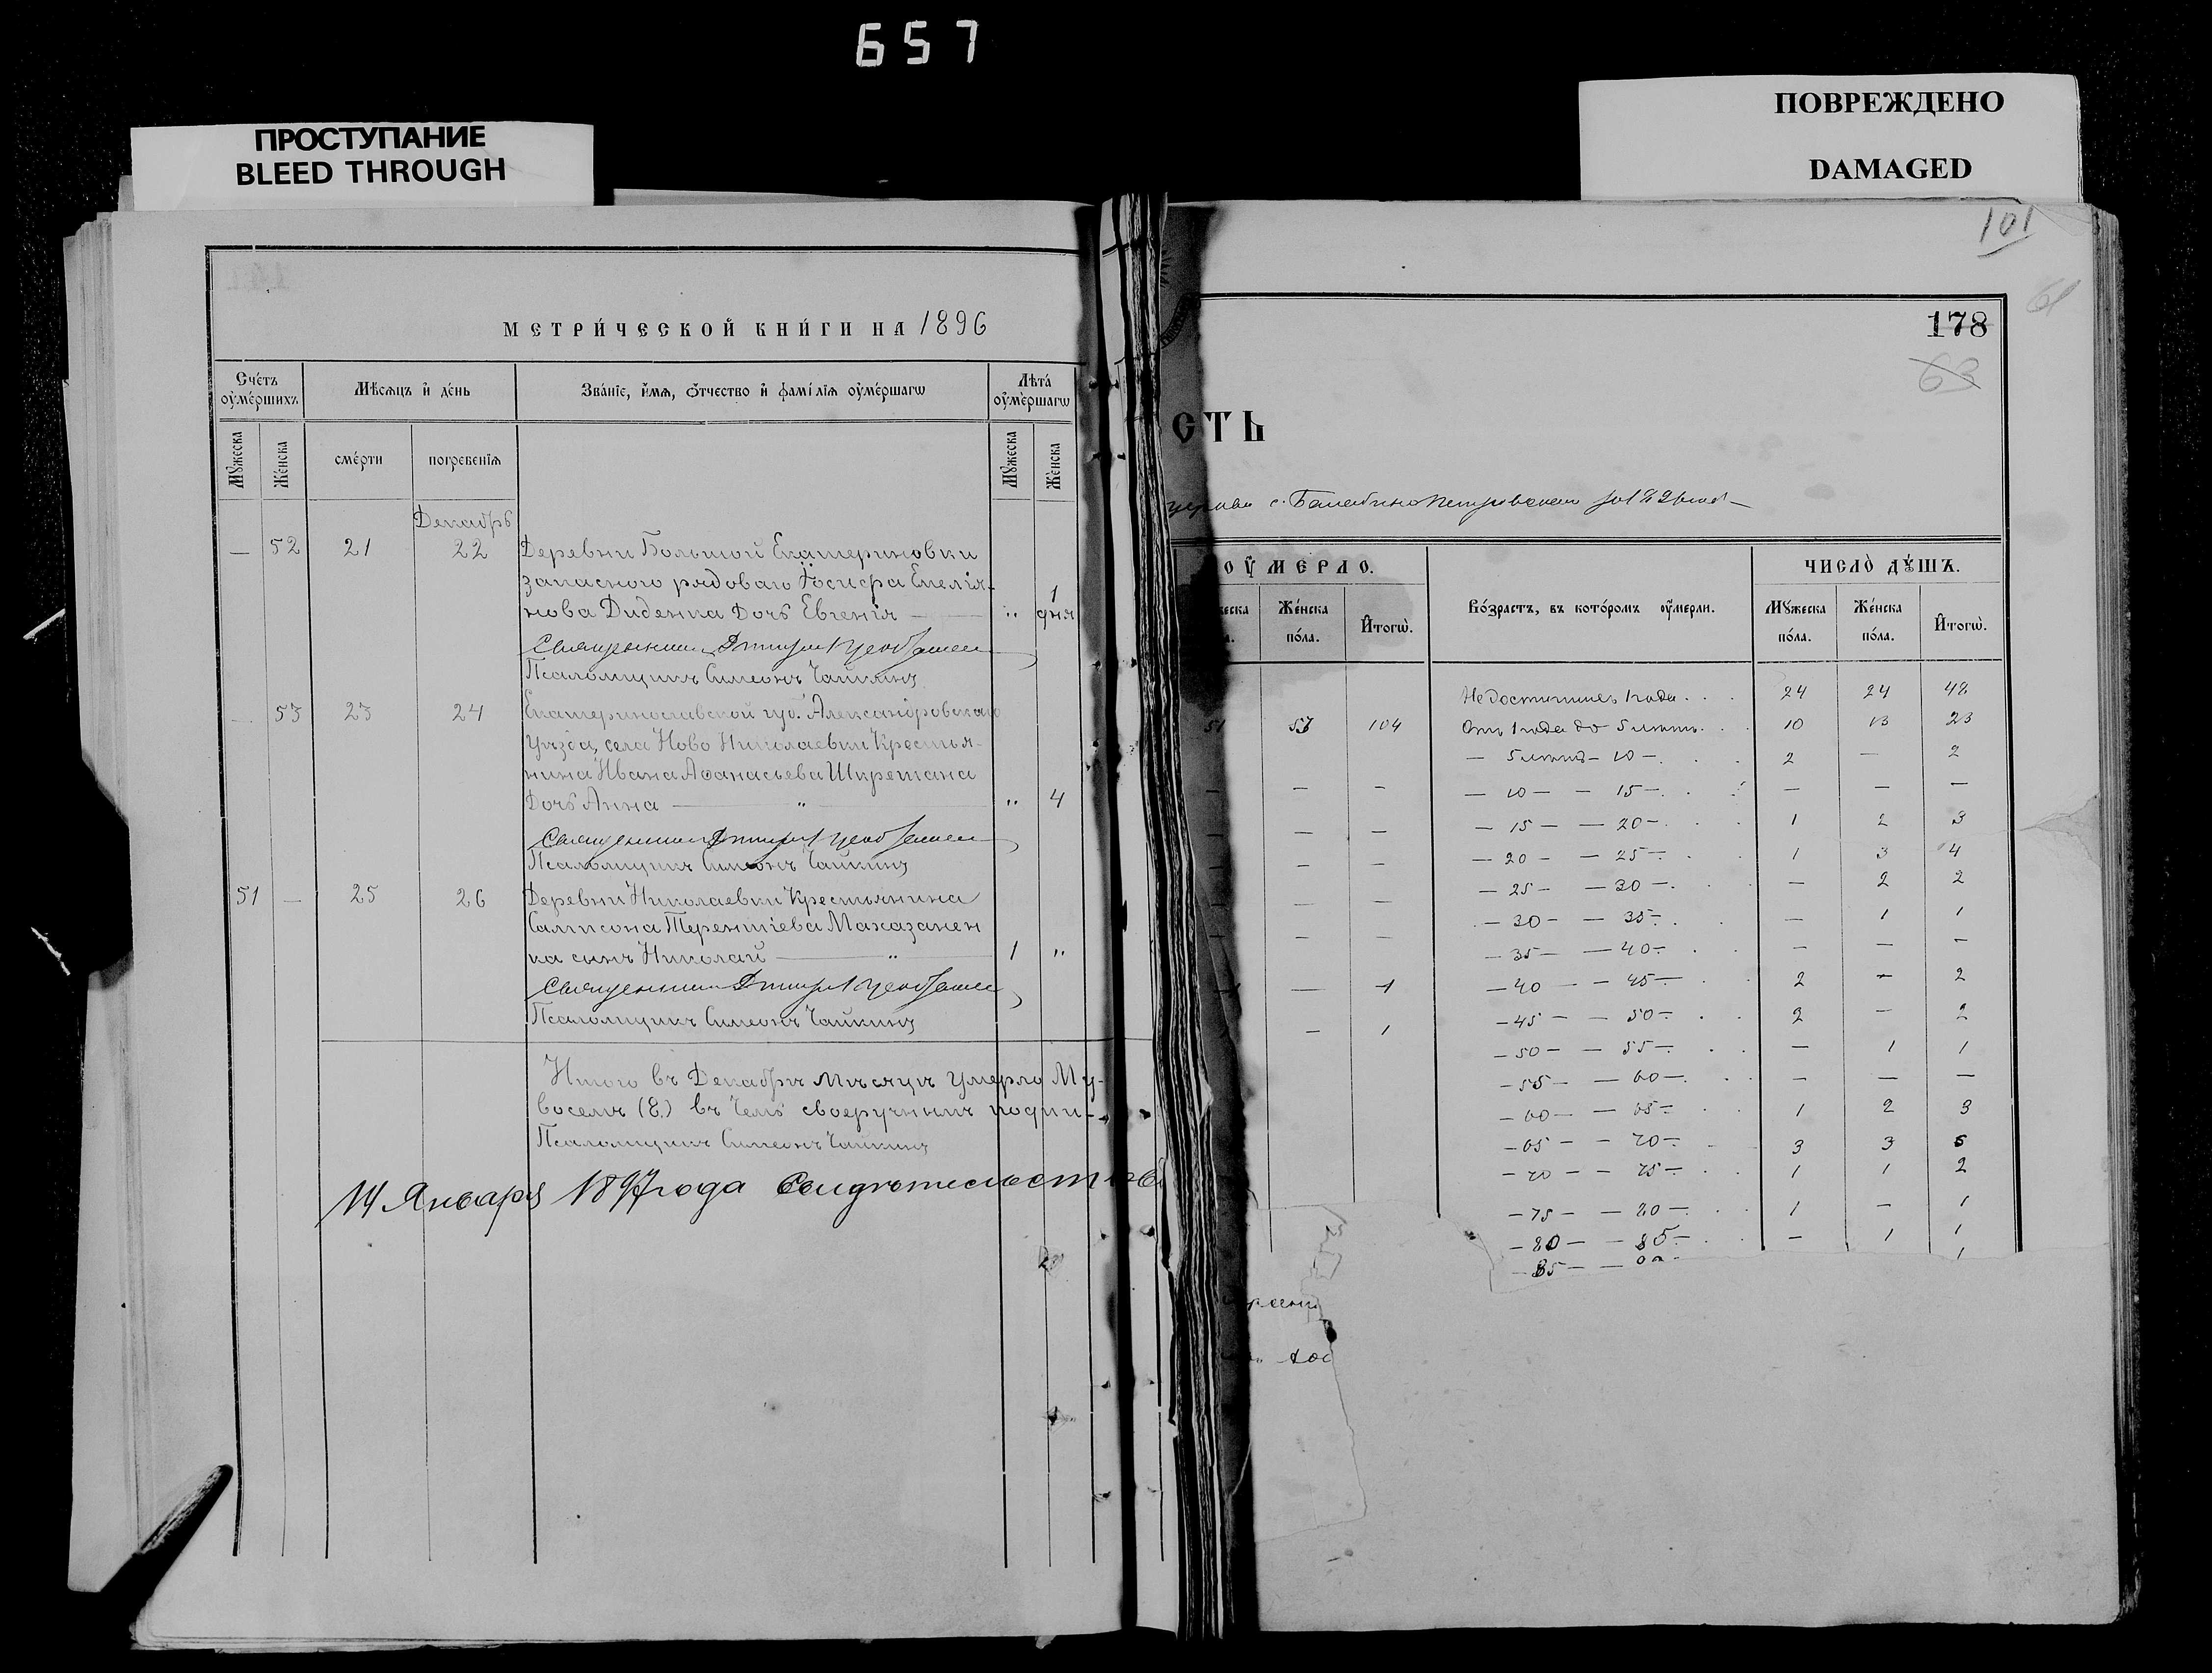 657
ПРОСТУПАНИЕ
BLEED THROUGH
ПОВРЕЖДЕНО
DAMAGED
МЕТРИ́ЧЕСКОЙ КНИ́ГИ НА 1896
Сче́тъ оуме́ршихъ
Мѣсяцъ и де́нь
Зва́нїе, и́мѧ, ѻтчество и фамі́лїѧ оуме́ршагѡ
Лѣта́ оуме́ршагѡ
Мꙋжеска
Же́нска
сме́рти
погребенїѧ
Мꙋжеска
Же́нска
Декабрь
— 52 21 22 Деревни Большой Екатериновки
запаснаго рядоваго Іосифа Емелія-
нова Диденка дочь Евгенія — " 1 дня
Священникъ Дмитрій
Псаломщикъ Симеонъ Чайкинъ
— 53 23 24 Екатеринославской губ. Александровскаго
уѣзда, села Ново Николаевки Крестья-
нина Ивана Аѳанасьева Шкретана
дочь Анна — " — " 4
Священникъ Дмитрій
Псаломщикъ Симеонъ Чайкинъ
51 — 25 26 Деревни Николаевки Крестьянина
Сампсона Терентіева Махазанен
ка сынъ Николай — " — 1 "
Священникъ Дмитрій
Псаломщикъ Симеонъ Чайкинъ
Итого въ Декабрѣ мѣсяцѣ умерло Му-
восемь (8.) въ чемъ своеручнымъ подпи-
Псаломщикъ Симеонъ Чайкинъ
14 Января 1897 года Свидѣтельствов
101
61
178
63
СТЬ
церкви с. Петровскаго
ОУМЕРЛО.
Же́нска по́ла.
И́тогѡ.
Во́зрастъ, въ кото́ромъ оумерли.
ЧИСЛО̀ ДꙊШЪ.
Мꙋжеска по́ла.
Же́нска по́ла.
И́тогѡ.
Недостигшихъ 1 года . . . 24 24 48
51 53 104 Отъ 1 года до 5 лѣтъ . . 10 13 23
— 5 лѣтъ — 10 —. . . 2 — 2
— — — — 10 — — 15 —. . — — —
— — — — 15 — — 20 —. . 1 2 3
— — — — 20 — — 25 —. . 1 3 4
— — — — 25 — — 30 —. . — 2 2
— — — — 30 — — 35 —. . — 1 1
— 35 — — 40 —. . — — —
— 1 — 40 — — 45 — . 2 — 2
— 1 — 45 — — 50 —. . 2 — 2
— 50 — — 55 —. . — 1 1
— 55 — — 60 —. . — — —
— 60 — — 65 —. 1 2 3
— 65 — — 70 —. 3 3 6
— 70 — — 75 —. . 1 1 2
— 75 — — 80 —. . 1 — 1
— 80 — — 85 —. . — 1 1
— 85 — — 1